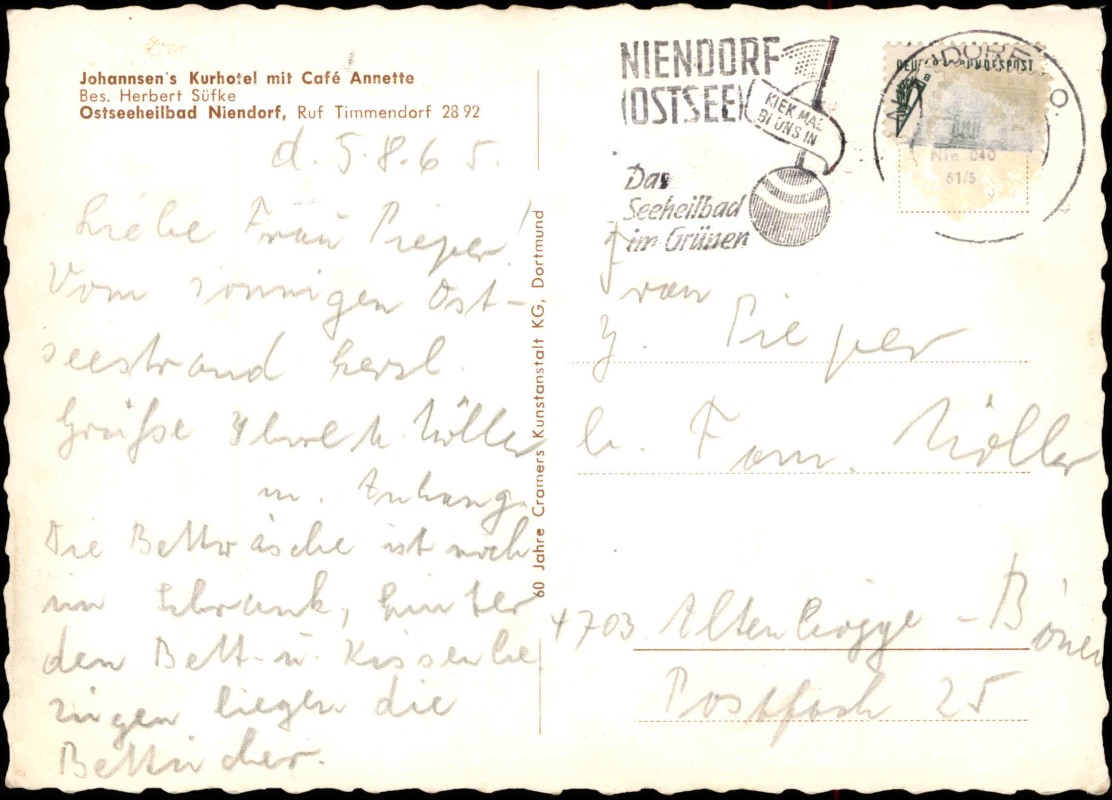 Johannsen's Kurhotel mit Café Annette
Bes. Herbert Süfke
Ostseeheilbad Niendorf, Ruf Timmendorf 28 92
d. 5.8.65.
Liebe Frau Pieper!
Vom sonnigen Ost-
seestrand herzl.
Grüße Ihre Möller
m. Anhang.
Die Bettwäsche ist noch
im Schrank, hinter
den Bett- u. Kissenbe
zügen liegen die
Bettücher.
60 Jahre Cramers Kunstanstalt KG, Dortmund
NIENDORF
(OSTSEE)
KIEK MAL
BI UNS IN
Das
Seeheilbad
im Grünen
DEUTSCHE BUNDESPOST
Nie 040
61/5
Frau
Pieper
b. Fam. Möller
4703 Altenbögge - Bönen
Postfach 25